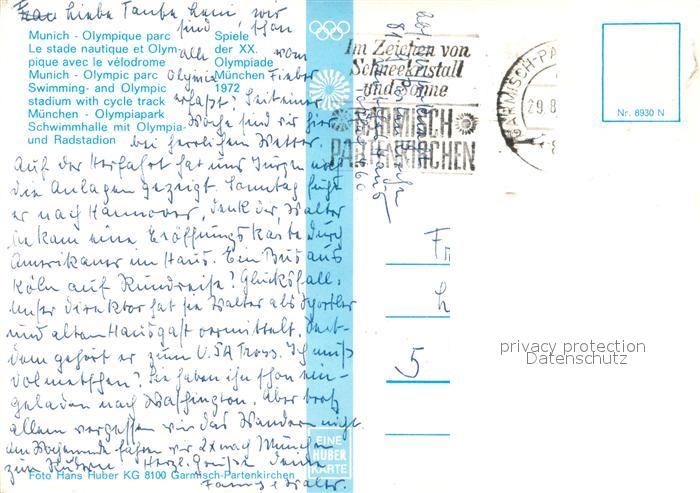 Liebe Tante Leni, wir
sind schon
alle vom
Olympia Fieber
erfaßt! Seit einer
Woche sind wir hier
bei herrlichem Wetter.
Auf der Herfahrt hat uns Jürgen noch
die Anlagen gezeigt. Sonntag
er nach Hannover, denk dir, Walter
bekam eine Eröffnungskarte durch
Amerikaner im Haus. Ein Bus aus
Köln auf Rundreise! Glücksfall.
Unser Direktor hat sie Walter als Sportler
und altem Hausgast vermittelt. Seit-
dem gehört er zum USA Tross. Ich muß
dolmetschen! Sie haben ihn schon ein-
geladen nach Washington. Aber trotz
allem vergessen wir das Wandern nicht.
am Wochenende fahren wir 2x nach München
zum Rudern. Herzl. Grüße Deine
Walter.
Munich - Olympique parc
Le stade nautique et Olym-
pique avec le vélodrome
Munich - Olympic parc
Swimming- and Olympic
stadium with cycle track
München - Olympiapark
Schwimmhalle mit Olympia-
und Radstadion
Spiele
der XX.
Olympiade
München
1972
Im Zeichen von
Schneekristall
und Sonne
GARMISCH
PARTENKIRCHEN
GARMISCH-PA
29.8
Nr. 8930 N
5
privacy protection
Datenschutz
EINE
HUBER
KARTE
Foto Hans Huber KG 8100 Garmisch-Partenkirchen